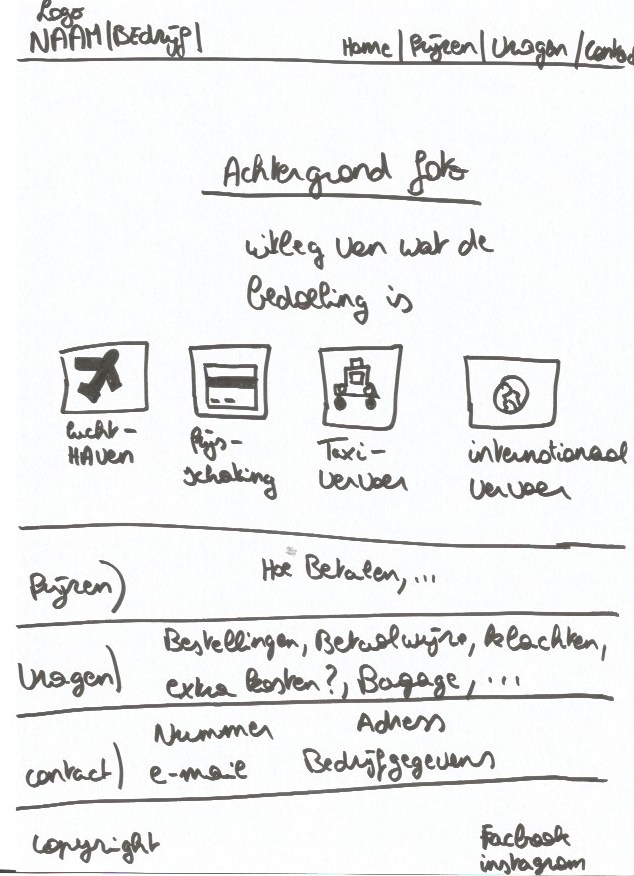 Logo
NAAM|BEdrijf|
Home|Prijzen|Vragen/Contact
Achtergrond foto
uitleg van wat de
bedoeling is
lucht-
HAven
Prijs-
schatting
Taxi-
vervoer
internationaal
vervoer
Prijzen)
Hoe Betalen, ...
Vragen)
Bestellingen, Betaalwijze, klachten,
extra kosten?, Bagage, ...
contact)
Nummer
Adress
e-mail
Bedrijfgegevens
copyright
Facbook
instagram